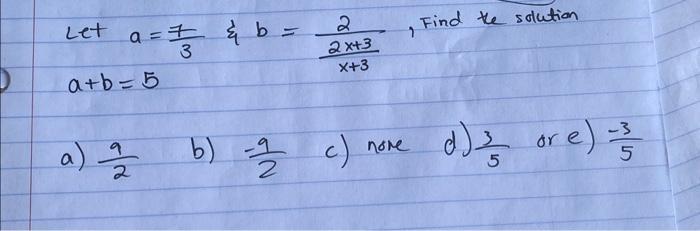 Let a = 7/3 & b = 2/((2x+3)/(x+3)), Find the solution
a+b=5
a) 9/2 b) -9/2 c) none d) 3/5 or e) -3/5